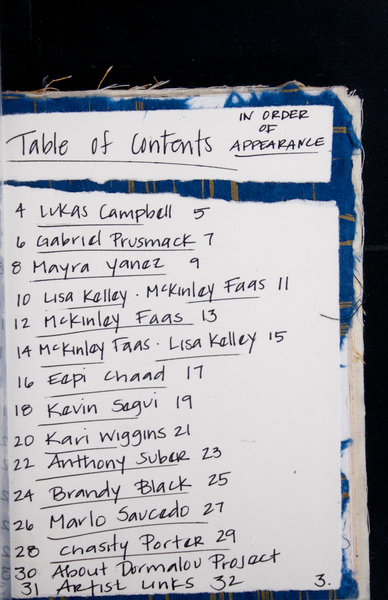 Table of Contents
IN ORDER
OF
APPEARANCE
4 Lukas Campbell 5
6 Gabriel Prusmack 7
8 Mayra Yanez 9
10 Lisa Kelley · McKinley Faas 11
12 McKinley Faas 13
14 McKinley Faas · Lisa Kelley 15
16 Eepi Chaad 17
18 Kevin Segui 19
20 Kari Wiggins 21
22 Anthony Suber 23
24 Brandy Black 25
26 Marlo Saucedo 27
28 Chasity Porter 29
30 About Dormalou Project
31 Artist Links 32
3.